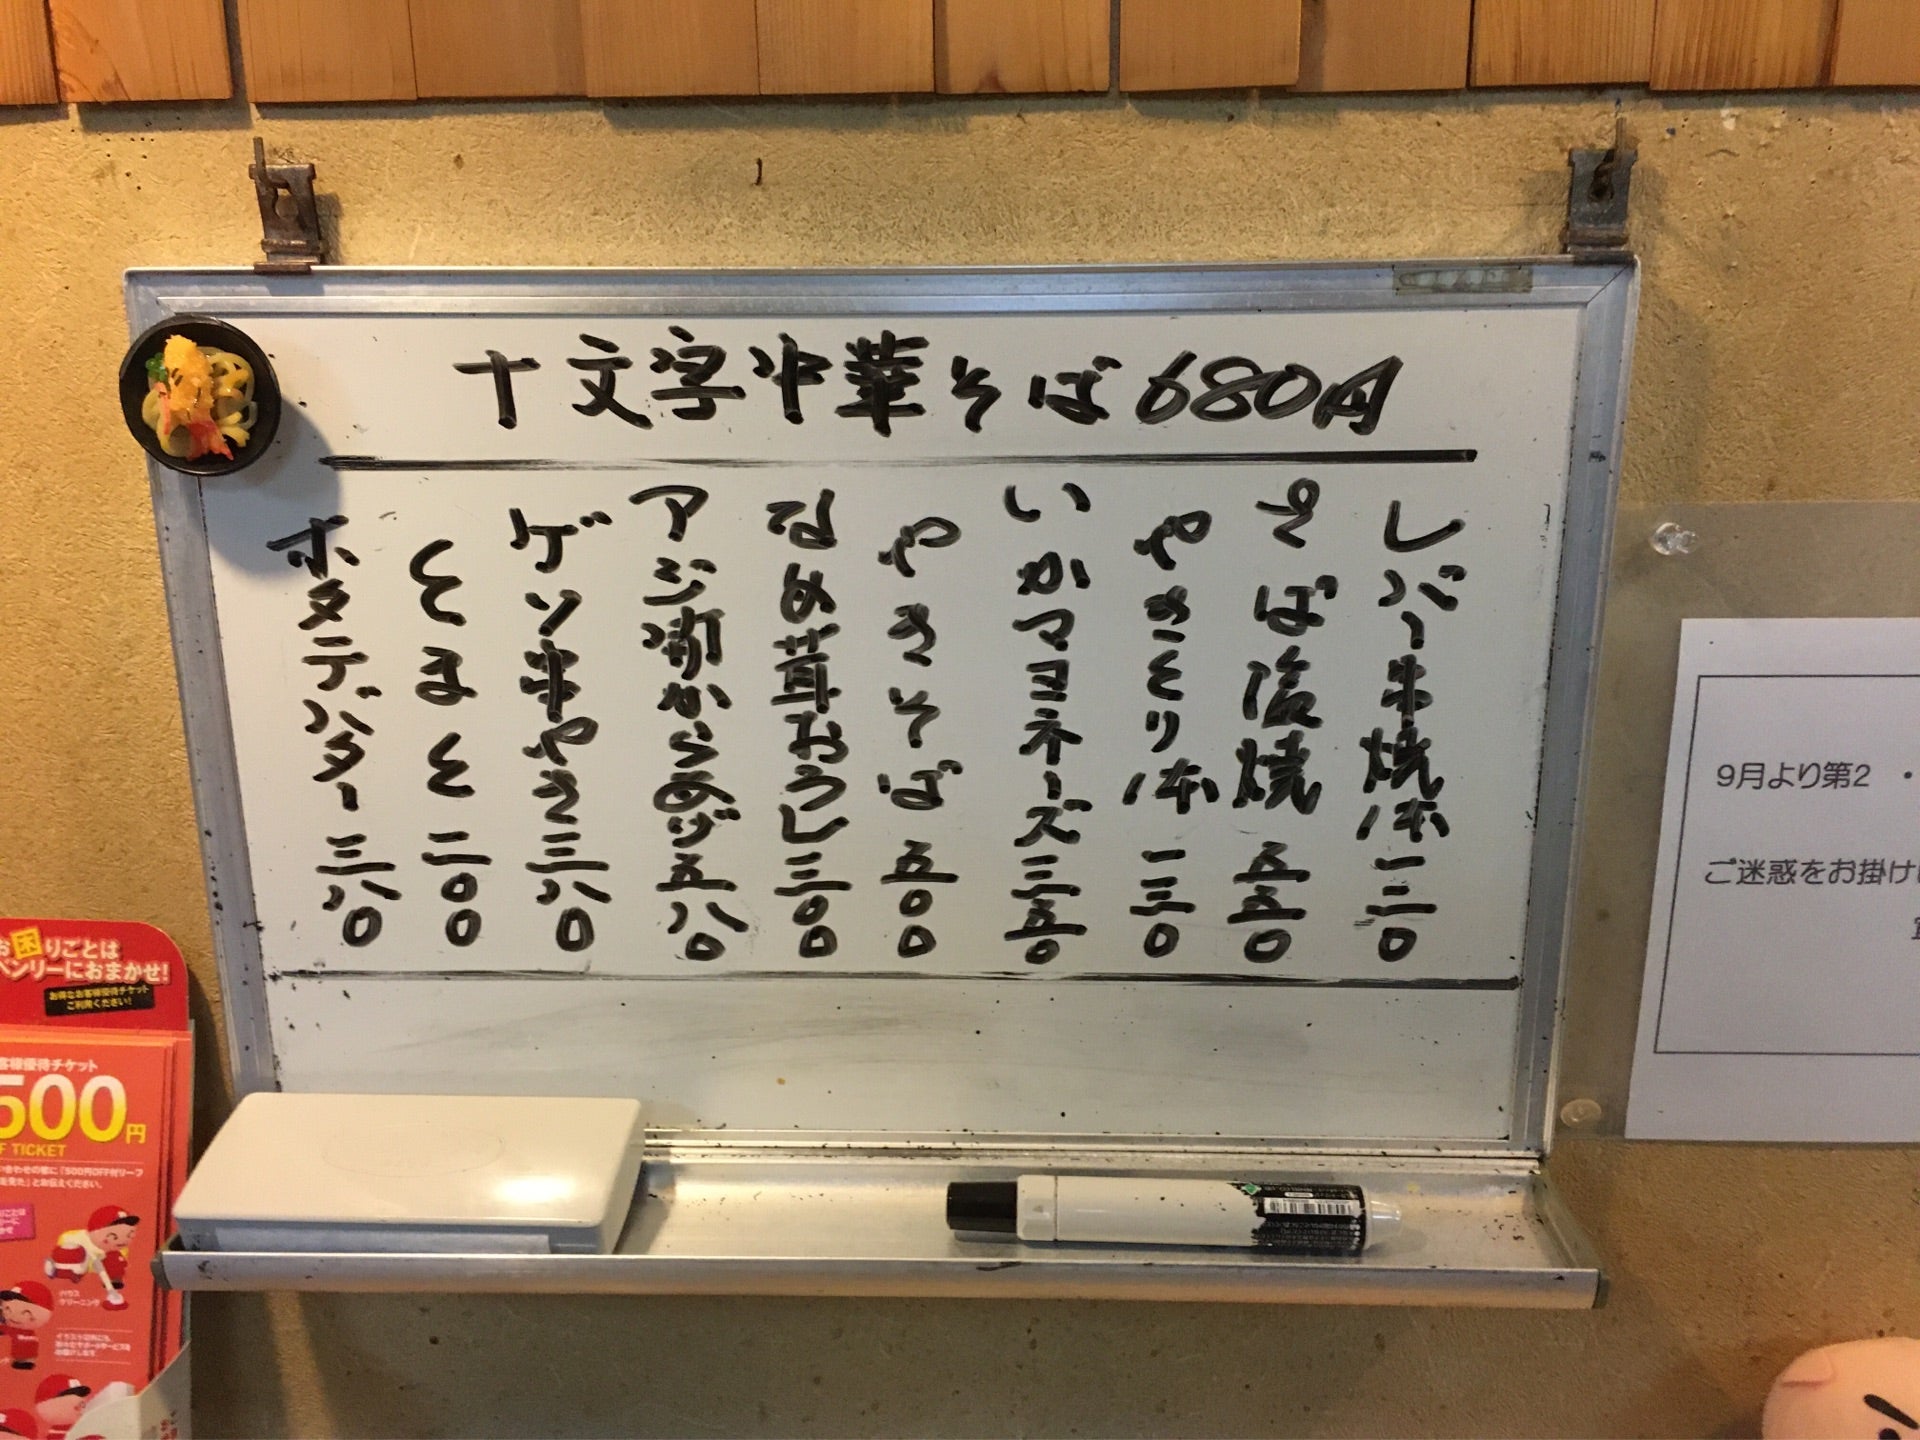 十文字中華そば680円
レバー串焼1本一二〇
さば塩焼 五五〇
やきとり1本 一三〇
いかマヨネーズ三五〇
やきそば 五〇〇
なめ茸おろし三〇〇
アジ南からめづ五八〇
ゲソ串やき三八〇
とまと 二〇〇
ホタテバター 三八〇
9月より第2 ・
ご迷惑をお掛け
お困りごとは
ベンリーにおまかせ!
お得なお客様優待チケット
ご利用ください!
客様優待チケット
500円
F TICKET
ハウス
クリーニング